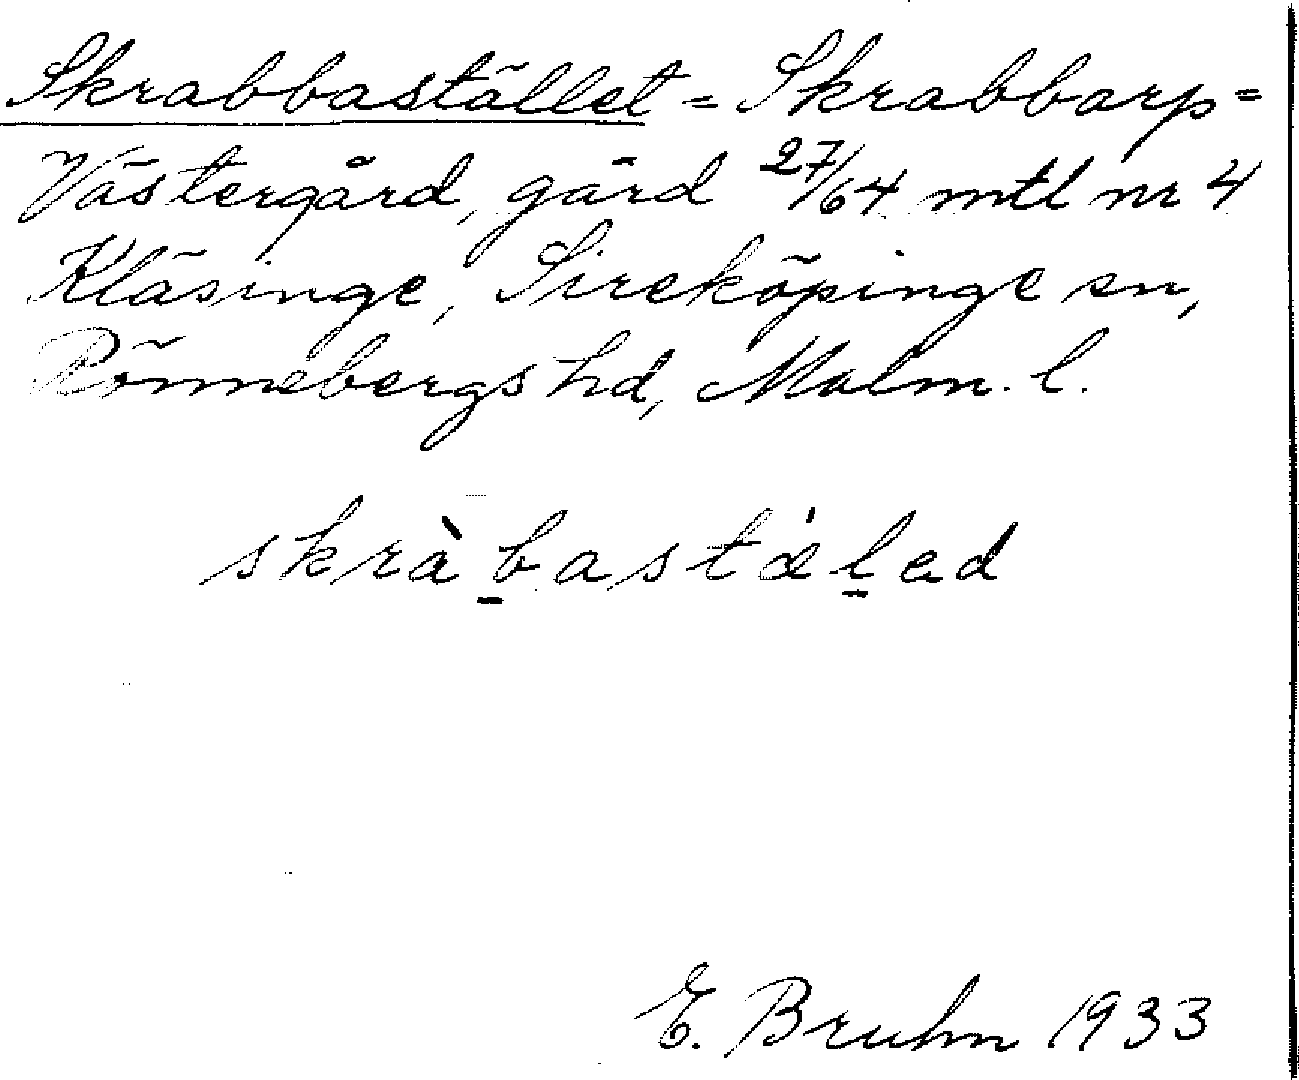 Skrabbastället = Skrabbarp=
Västergård, gård 27/64 mtl nr 4
Kläsinge, Sireköpinge sn,
Rönnebergs hd, Malm. l.
skràb̠astæ'l̠ad
E. Bruhn 1933